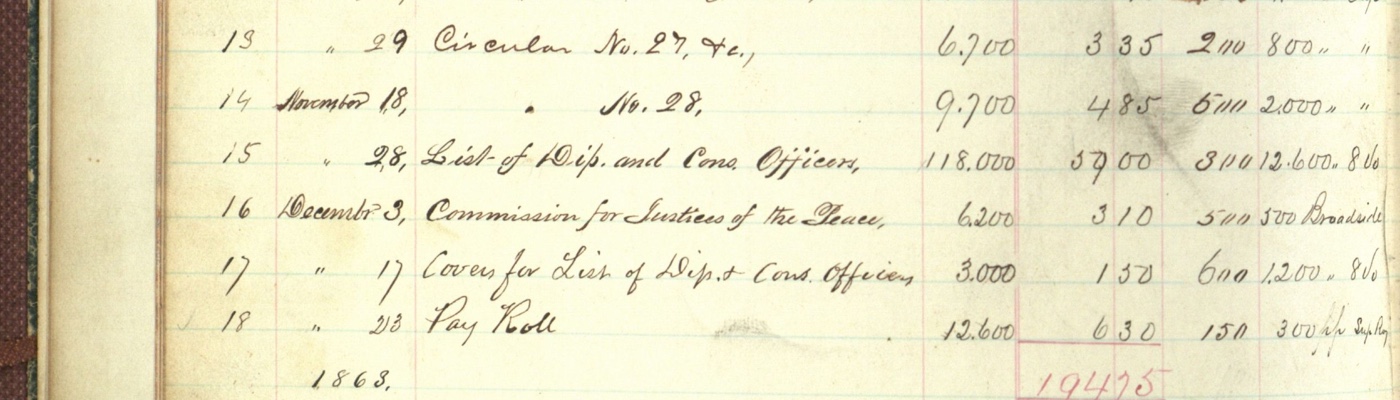 13 " 29 Circular No. 27, &c., 6.700 3 35 2 00 800 " "
14 November 18, " No. 28, 9.700 4 85 5 00 2.000 " "
15 " 28, List of Dip. and Cons. Officers, 118.000 59 00 3 00 12.600 " 8vo
16 Decembr 3, Commission for Justices of the Peace, 6.200 3 10 5 00 500 Broadside
17 " 17 Covers for List of Dip. & Cons. Officers 3.000 1 50 6 00 1.200 " 8vo
18 " 23 Pay Roll 12.600 6 30 150 300 pp Sup Roy
1863. 194 75